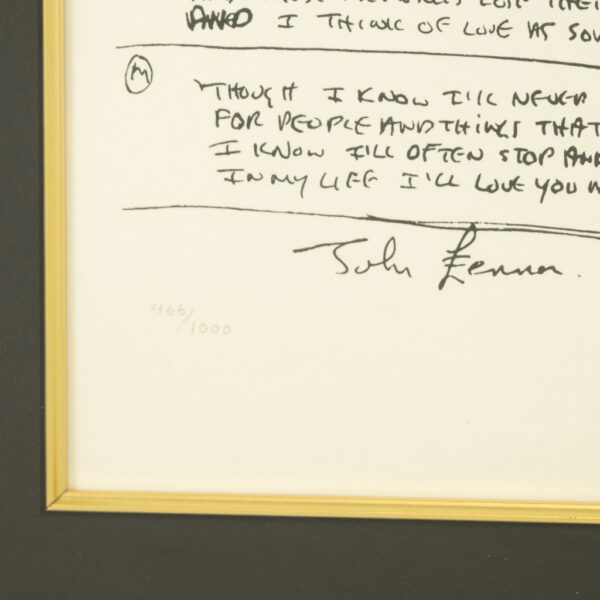 I THINK OF LOVE AS
M
THOUGH I KNOW I'LL NEVER
FOR PEOPLE AND THINGS THAT
I KNOW I'LL OFTEN STOP AN
IN MY LIFE I'LL LOVE YOU
John Lennon.
466/1000